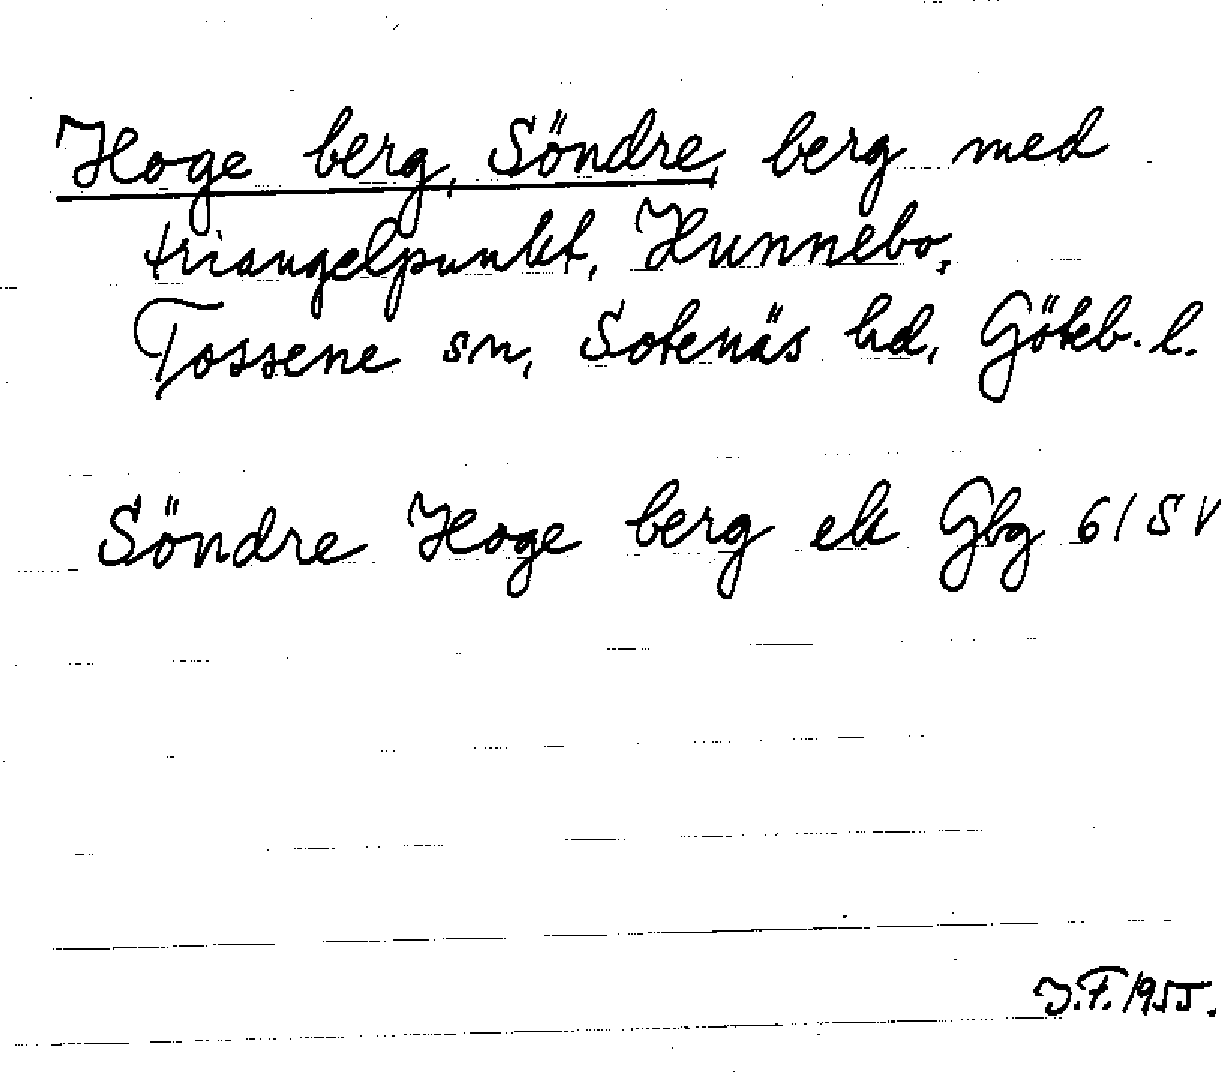 Hoge berg, Söndre, berg med
triangelpunkt, Hunnebo,
Tossene sn, Sotenäs hd, Göteb. l.
Söndre Hoge berg ek Gbg 61 SV
J.F. 1955.